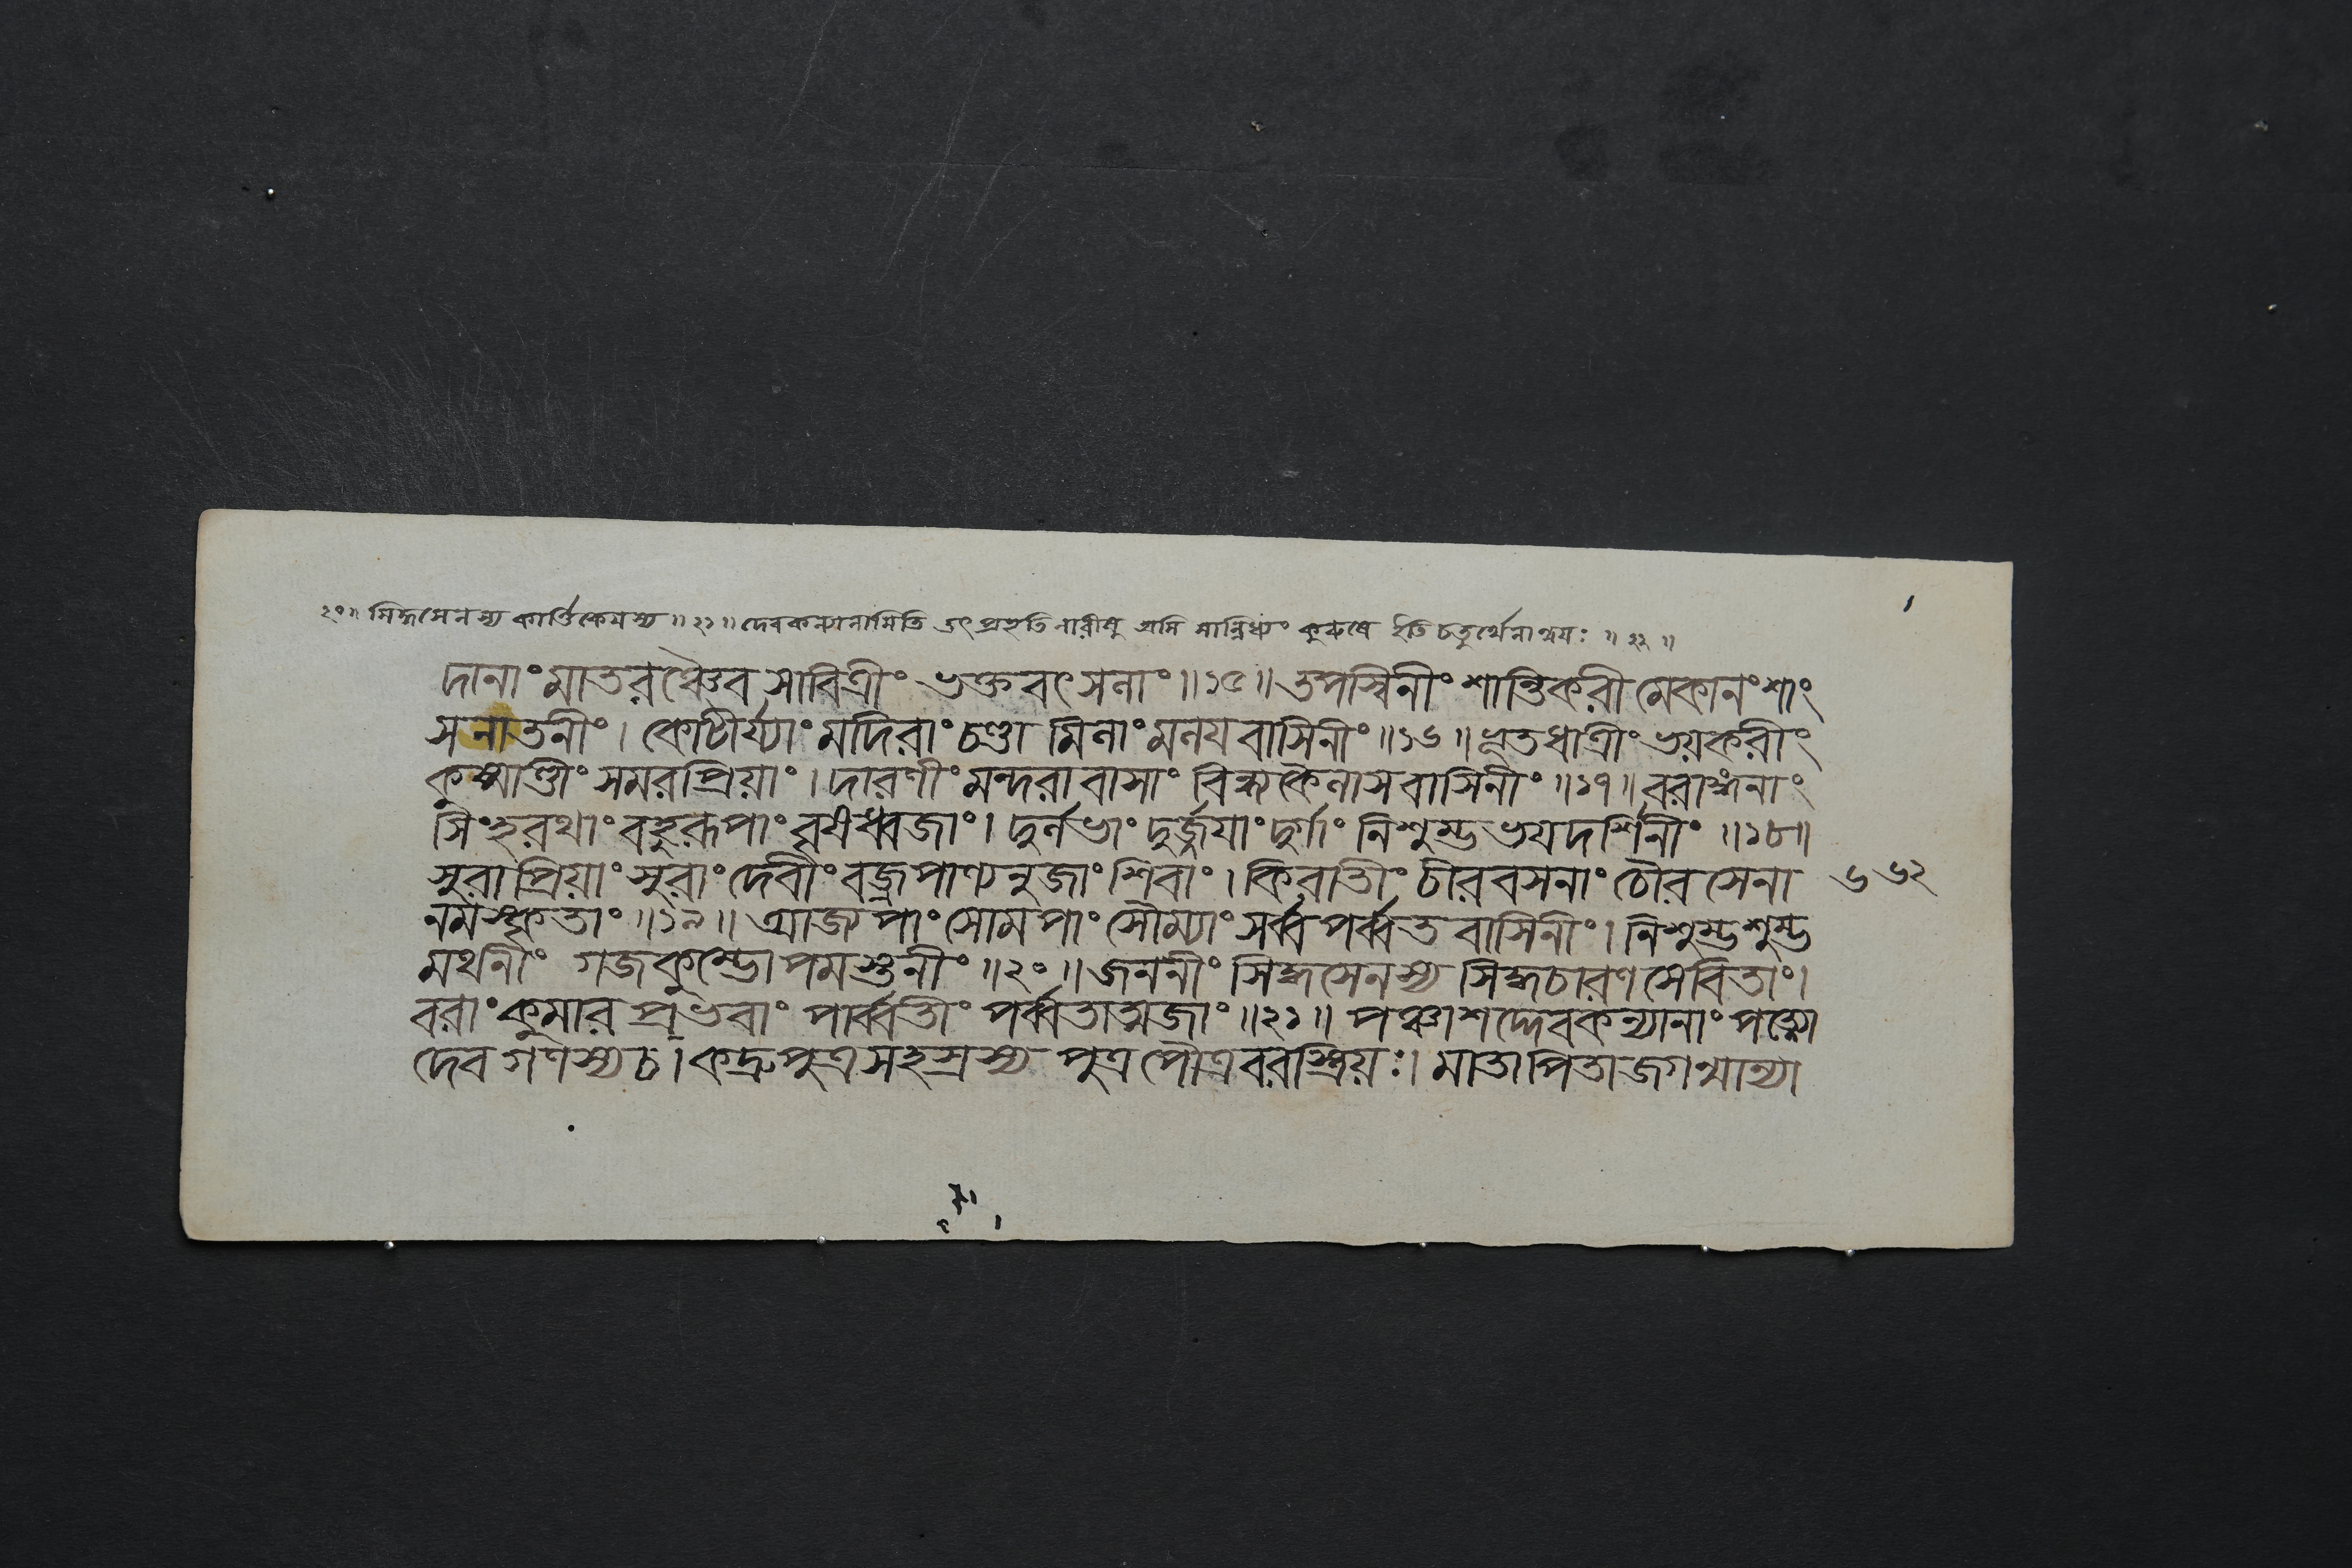 ২০॥ সিদ্ধসেনস্য কার্ত্তিকেয়স্য ॥২১॥ দেবকন্যানামিতি তৎ প্রভৃতি নারীষু অসি সান্নিধ্যং কুরুষে ইতি চতুর্থেনান্বয়ঃ ॥২২॥
দানাং মাতরঞ্চৈব সাবিত্রীং ভক্তবৎসলাং॥১৫॥ তপস্বিনীং শান্তিকরী মেকানংশাং
সনাতনীং। কোটীর্য্যাং মদিরাং চণ্ডা মিলাং মলয়বাসিনীং॥১৬॥ ভূতধাত্রীং ভয়করীং
কুষ্মাণ্ডীং সমরপ্রিয়াং। দারণীং মন্দরাবাসাং বিন্ধ্যকৈলাসবাসিনীং॥১৭॥ বরাঙ্গনাং
সিংহরথাং বহুরূপাং বৃষধ্বজাং। দুর্লভাং দুর্জ্জয়াং দুর্গাং নিশুম্ভভয়দর্শিনীং॥১৮॥
সুরাপ্রিয়াং সুরাং দেবীং বজ্রপাণ্যনুজাং শিবাং। কিরাতীং চীরবসনাং চৌরসেনা ৬৬২
নমস্কৃতাং॥১৯॥ আজ্যপাং সোমপাং সৌম্যাং সর্ব্বপর্ব্বতবাসিনীং। নিশুম্ভশুম্ভ
মথনীং গজকুম্ভোপমস্তনীং॥২০॥ জননীং সিদ্ধসেনস্য সিদ্ধচারণসেবিতাং।
বরাং কুমারপ্রভবাং পার্ব্বতীং পর্ব্বতাত্মজাং॥২১॥ পঞ্চাশদ্দেবকন্যানাং পত্ন্যো
দেবগণস্য চ। কদ্রুপুত্রসহস্রস্য পুত্রপৌত্রবরস্ত্রিয়ঃ। মাতাপিতা জগন্মান্যা